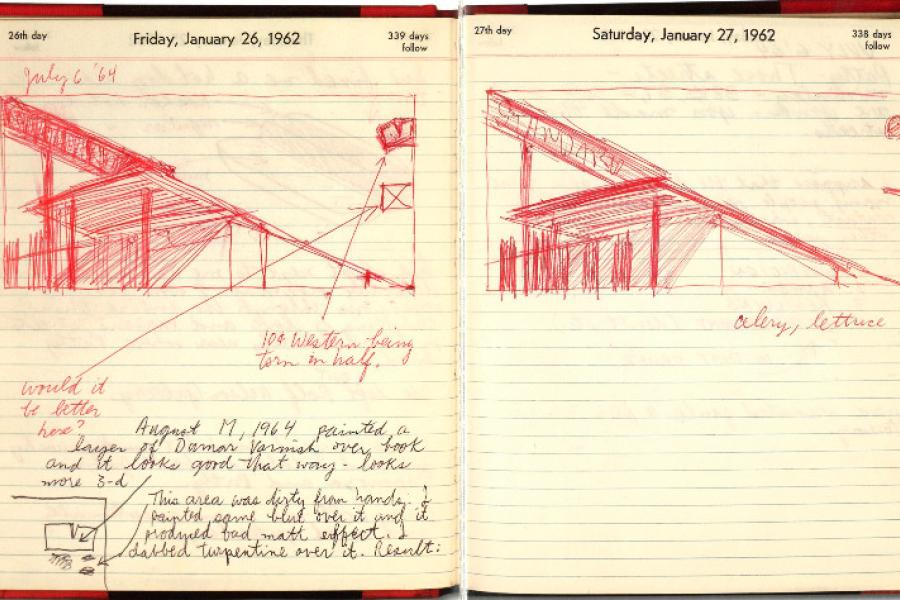 26th day
Friday, January 26, 1962
339 days
follow
July 6 '64
STANDARD
10¢ Western being
torn in half.
would it
be better
here?
August 11, 1964 painted a
layer of Damar Varnish over book
and it looks good that way - looks
more 3-d
This area was dirty from hands. I
painted some blue over it and it
produced bad matt effect. I
dabbed turpentine over it. Result:
27th day
Saturday, January 27, 1962
338 days
follow
STANDARD
celery, lettuce